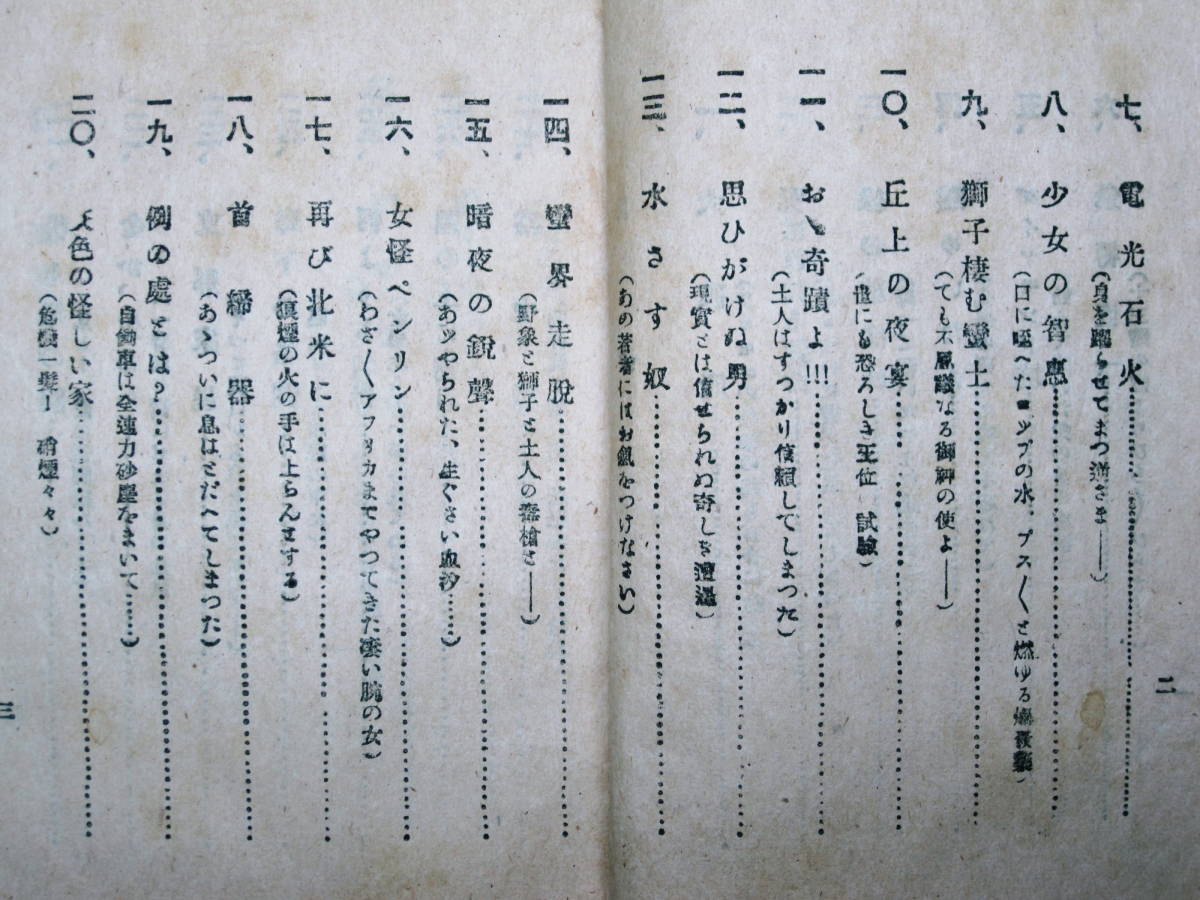 七、電光石火
(身を躍らせてまつ逆さま——)
八、少女の智惠
(口に啣へたコップの水、プス〱と燃ゆる爆發藥)
九、獅子棲む蠻土
(ても不思議なる御神の使よ——)
一〇、丘上の夜宴
(世にも恐ろしき王位 試驗)
一一、おゝ奇蹟よ!!!
(土人はすつかり信頼してしまつた)
一二、思ひがけぬ男
(現實とは信せられぬ奇しき遭遇)
一三、水さす奴
(あの著者にはお氣をつけなさい)
二
一四、蠻界走脱
(野象と獅子と土人の毒槍さ——)
一五、暗夜の鋭聲
(あッやられた、生ぐさい血汐……)
一六、女怪ペンリン
(わざ〱アフリカまでやつてきた凄い腕の女)
一七、再び北米に
(煙の火の手は上らんとする)
一八、首締器
(あゝついに息はとだへてしまつた)
一九、例の處とは?
(自働車は全速力砂塵をまいて……)
二〇、色の怪しい家
(危機一髪! 硝煙々々)
三